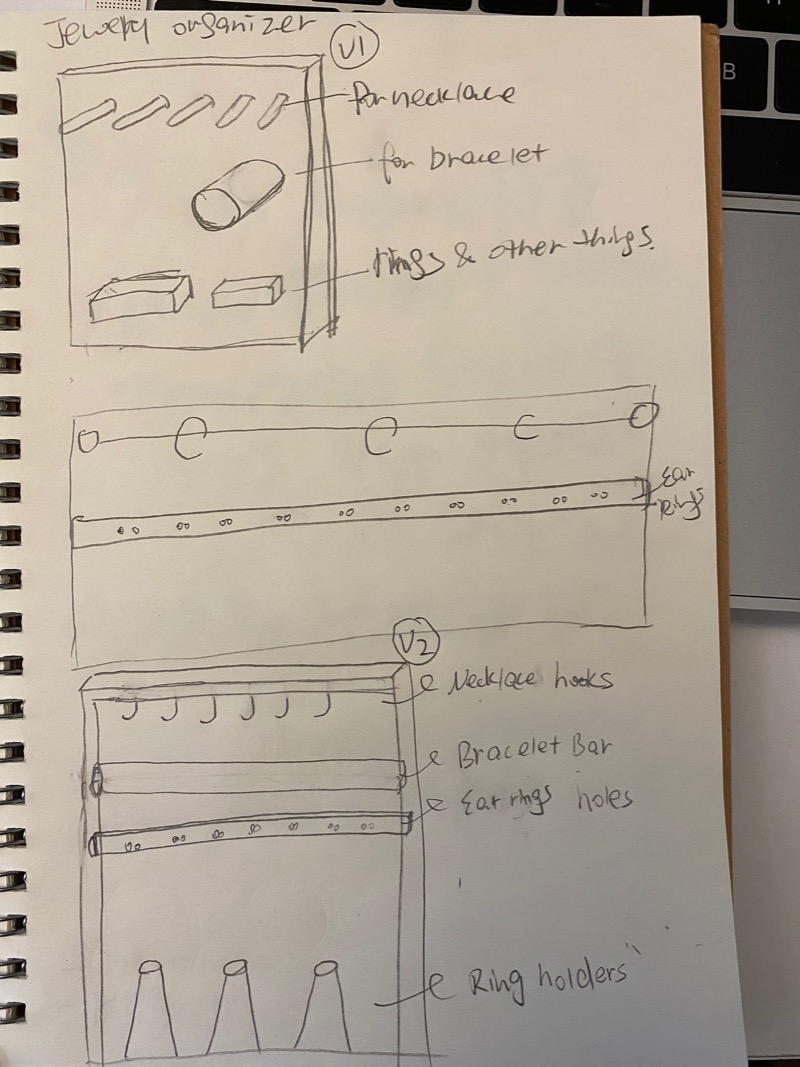 Jewery organizer
V1
for necklace
for bracelet
rings & other things.
Ear
Rings
V2
Necklace hooks
Bracelet Bar
Ear rings holes
Ring holders
B